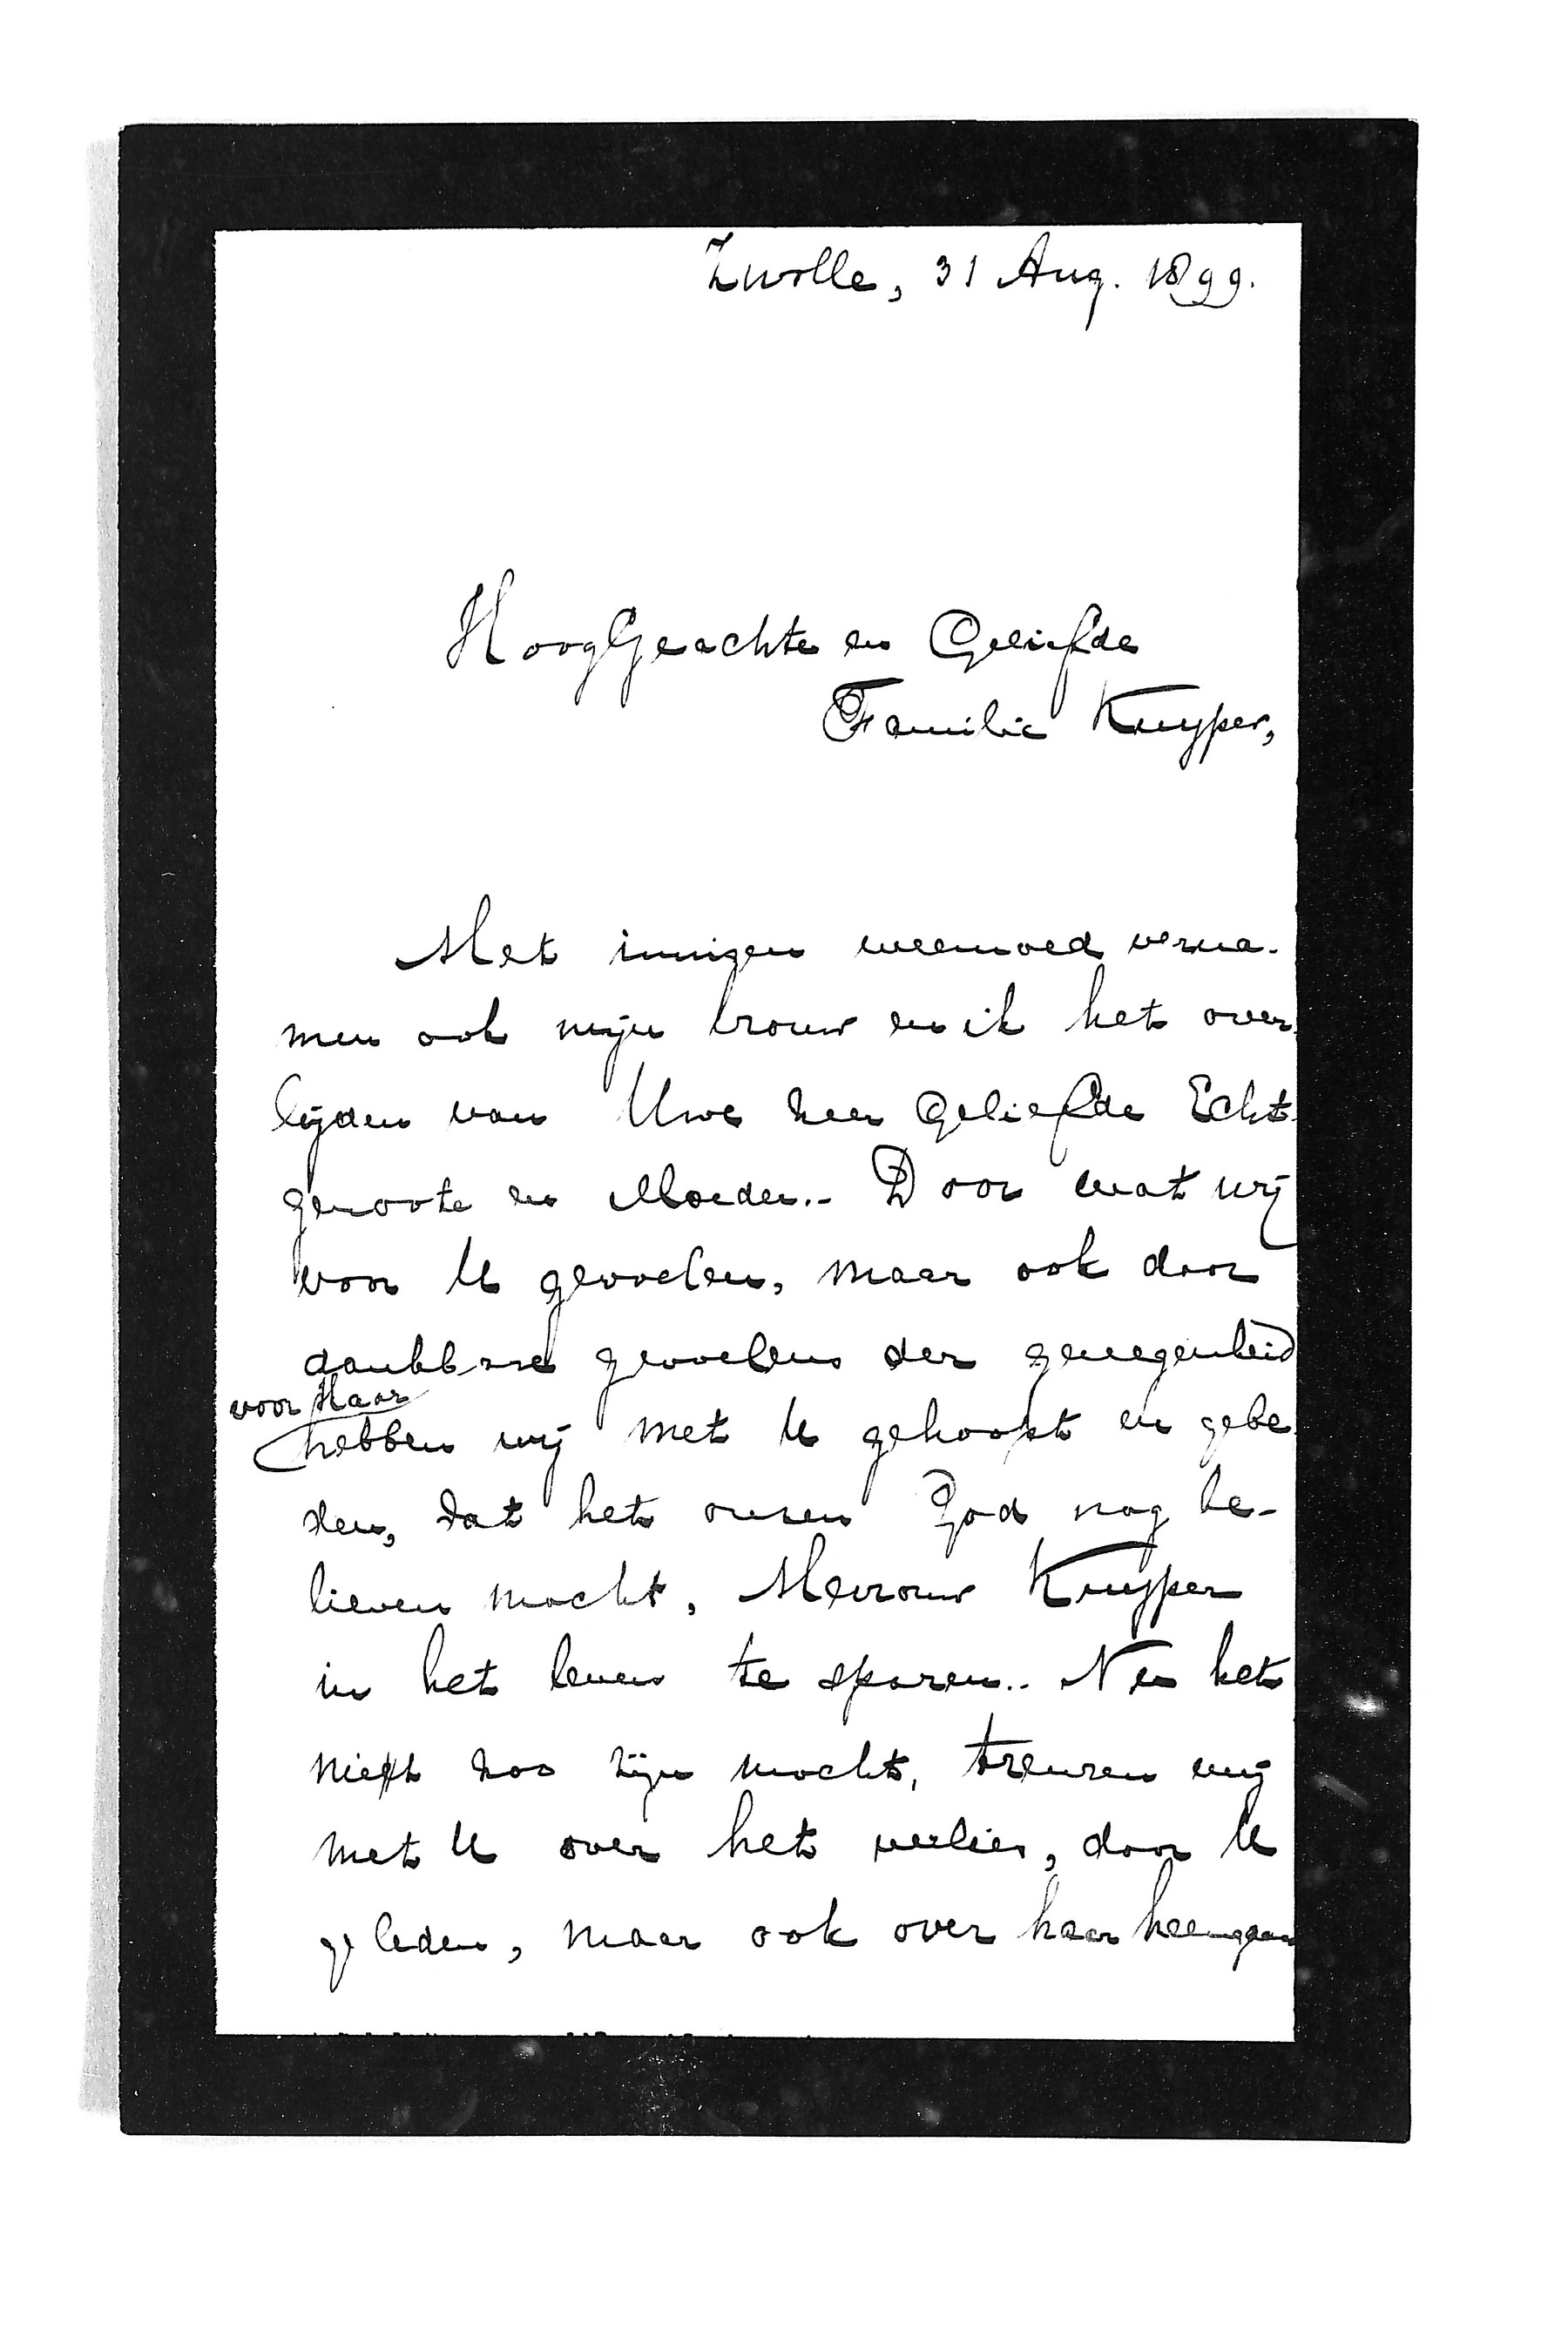 Zwolle, 31 Aug. 1899.
HoogGeachte en Geliefde
Familie Kuyper,
Met innigen weemoed verna-
men ook mijn vrouw en ik het over-
lijden van Uwe zeer Geliefde Echt-
genoote en Moeder.- Door wat wij
voor U gevoelen, maar ook door
dankbare gevoelens der genegenheid
voor Haar
hebben wij met U gehoopt en gebe
den, dat het onzen God nog be-
lieven mocht, Mevrouw Kuyper
in het leven te sparen.. Nu het
niet zoo zijn mocht, treuren wij
met U over het verlies, door U
geleden, maar ook over haar heengaan